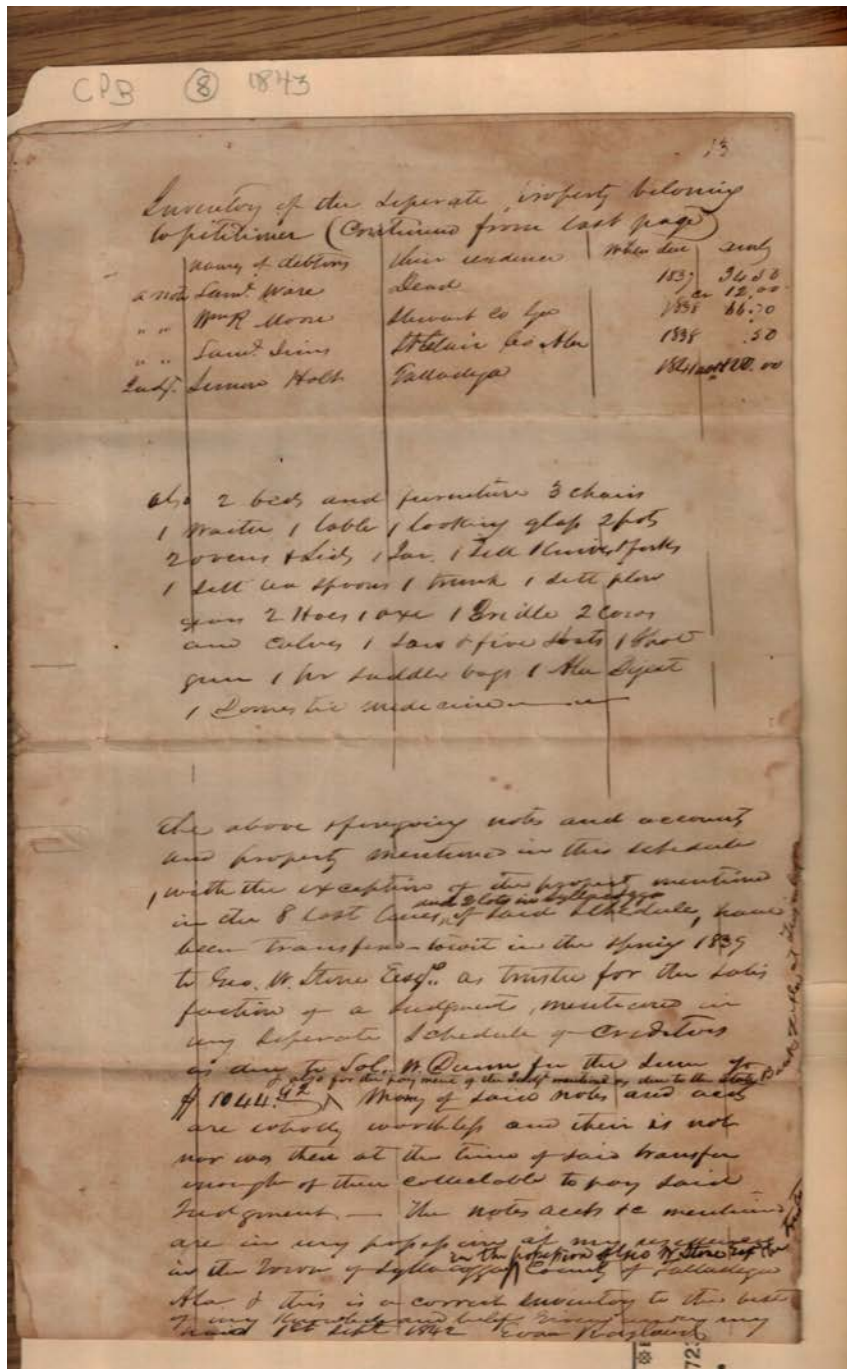 CPB 8 1843
13
Inventory of the Seperate property belonging
to petitioner (Continued from last page)
names of debtors their residence When due Amt
a note Saml. Ware Dead 1837 34.50
Cr 12.00
" " Wm R Moore Stewart Co Geo 1838 66.50
" " Saml. Sims St Clair Co Ala 1838 .50
Judgt. Holt Talladega
also 2 beds and furniture 3 chairs
1 waiter 1 table 1 looking glass 2 pots
2 ovens & Lids 1 Jar. 1 Sett Knives & forks
1 Sett tea spoons 1 trunk 1 sett plow
gears 2 Hoes 1 axe 1 Bridle 2 Cows
and Calves 1 Sow & five Shoats 1 Shot
gun 1 pr saddle bags 1 Ala Digest
1 Domestic medicine
The above & foregoing notes and accounts
and property mentioned in this schedule
with the exception of the property mentioned
and 2 lots in
in the 8 last lines, of said Schedule, have
been transfered - towit in the Spring 1839
to Geo. W. Stone Esqr. as trustee for the satis
faction of a Judgment, mentioned in
my Seperate Schedule of Creditors
as due to Sol. W. Dunn for the Sum of
& also for the payment of the Judgt mentioned as due to the State Bank
$1044.92 Many of said notes and accts
are wholly worthless and their is not
nor was there at the time of said transfer
enough of them collectable to pay said
Judgment. — The notes accts &c mentioned
are in my possession at my residence
in the possession of Geo W Stone Esqr
in the Town of Syllacogga County of Talladega
Ala & this is a correct Inventory to the best
of my Knowledge and belief Given under my
hand 1st Sept 1842 Evan Ragland
723